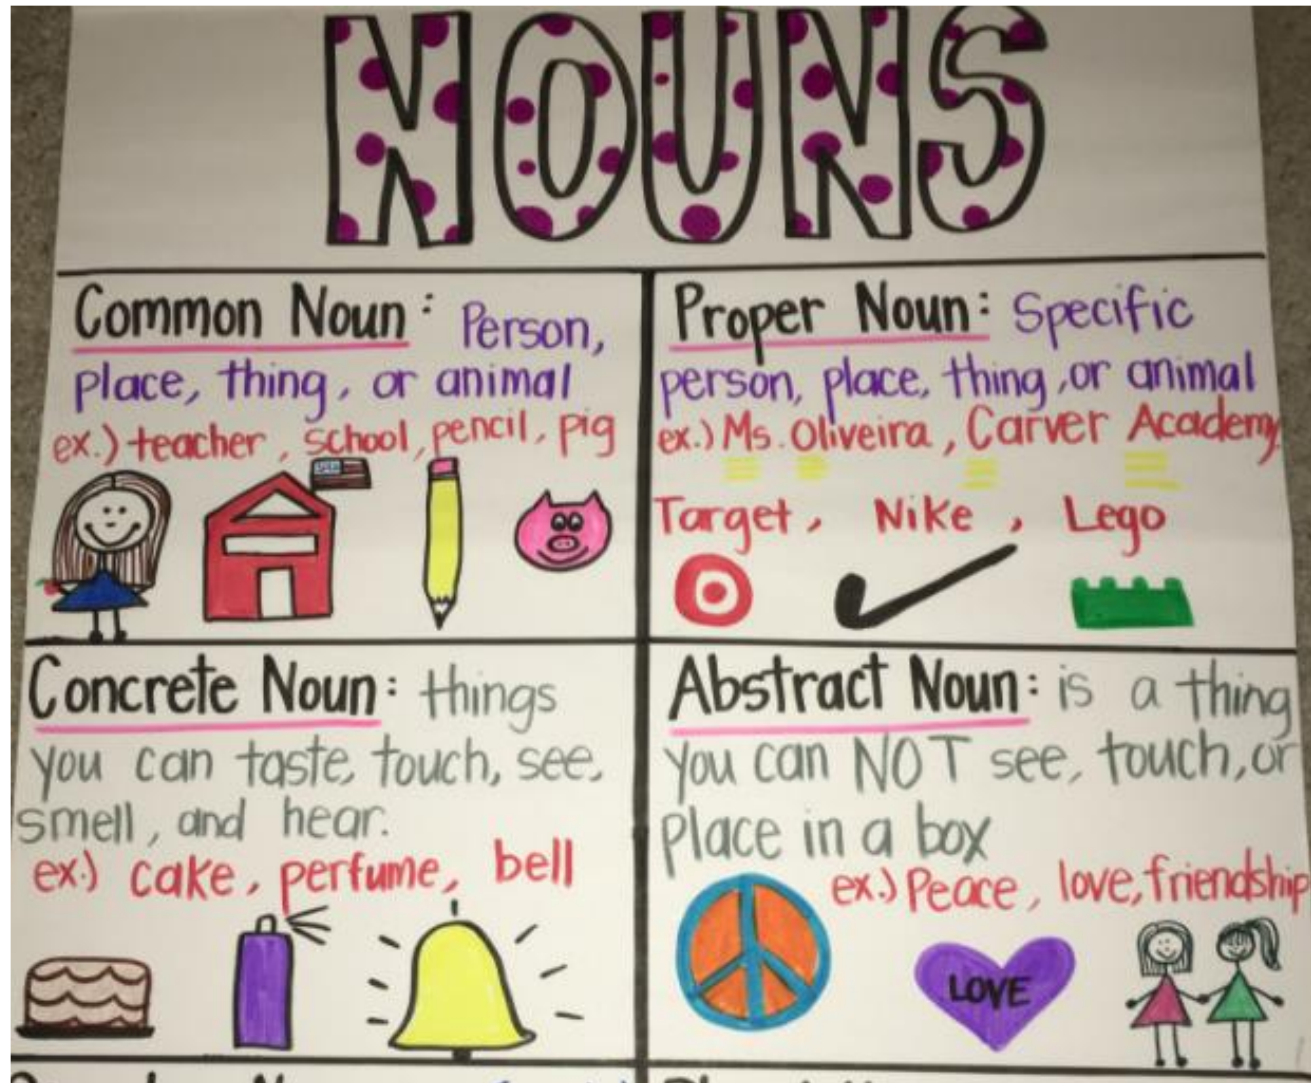 NOUNS
Common Noun: Person,
place, thing, or animal
ex.) teacher, school, pencil, pig
USA
Proper Noun: Specific
person, place, thing, or animal
ex.) Ms. Oliveira, Carver Academy
Target, Nike, Lego
Concrete Noun: things
you can taste, touch, see,
smell, and hear.
ex.) cake, perfume, bell
Abstract Noun: is a thing
you can NOT see, touch, or
place in a box
ex.) Peace, love, friendship
LOVE